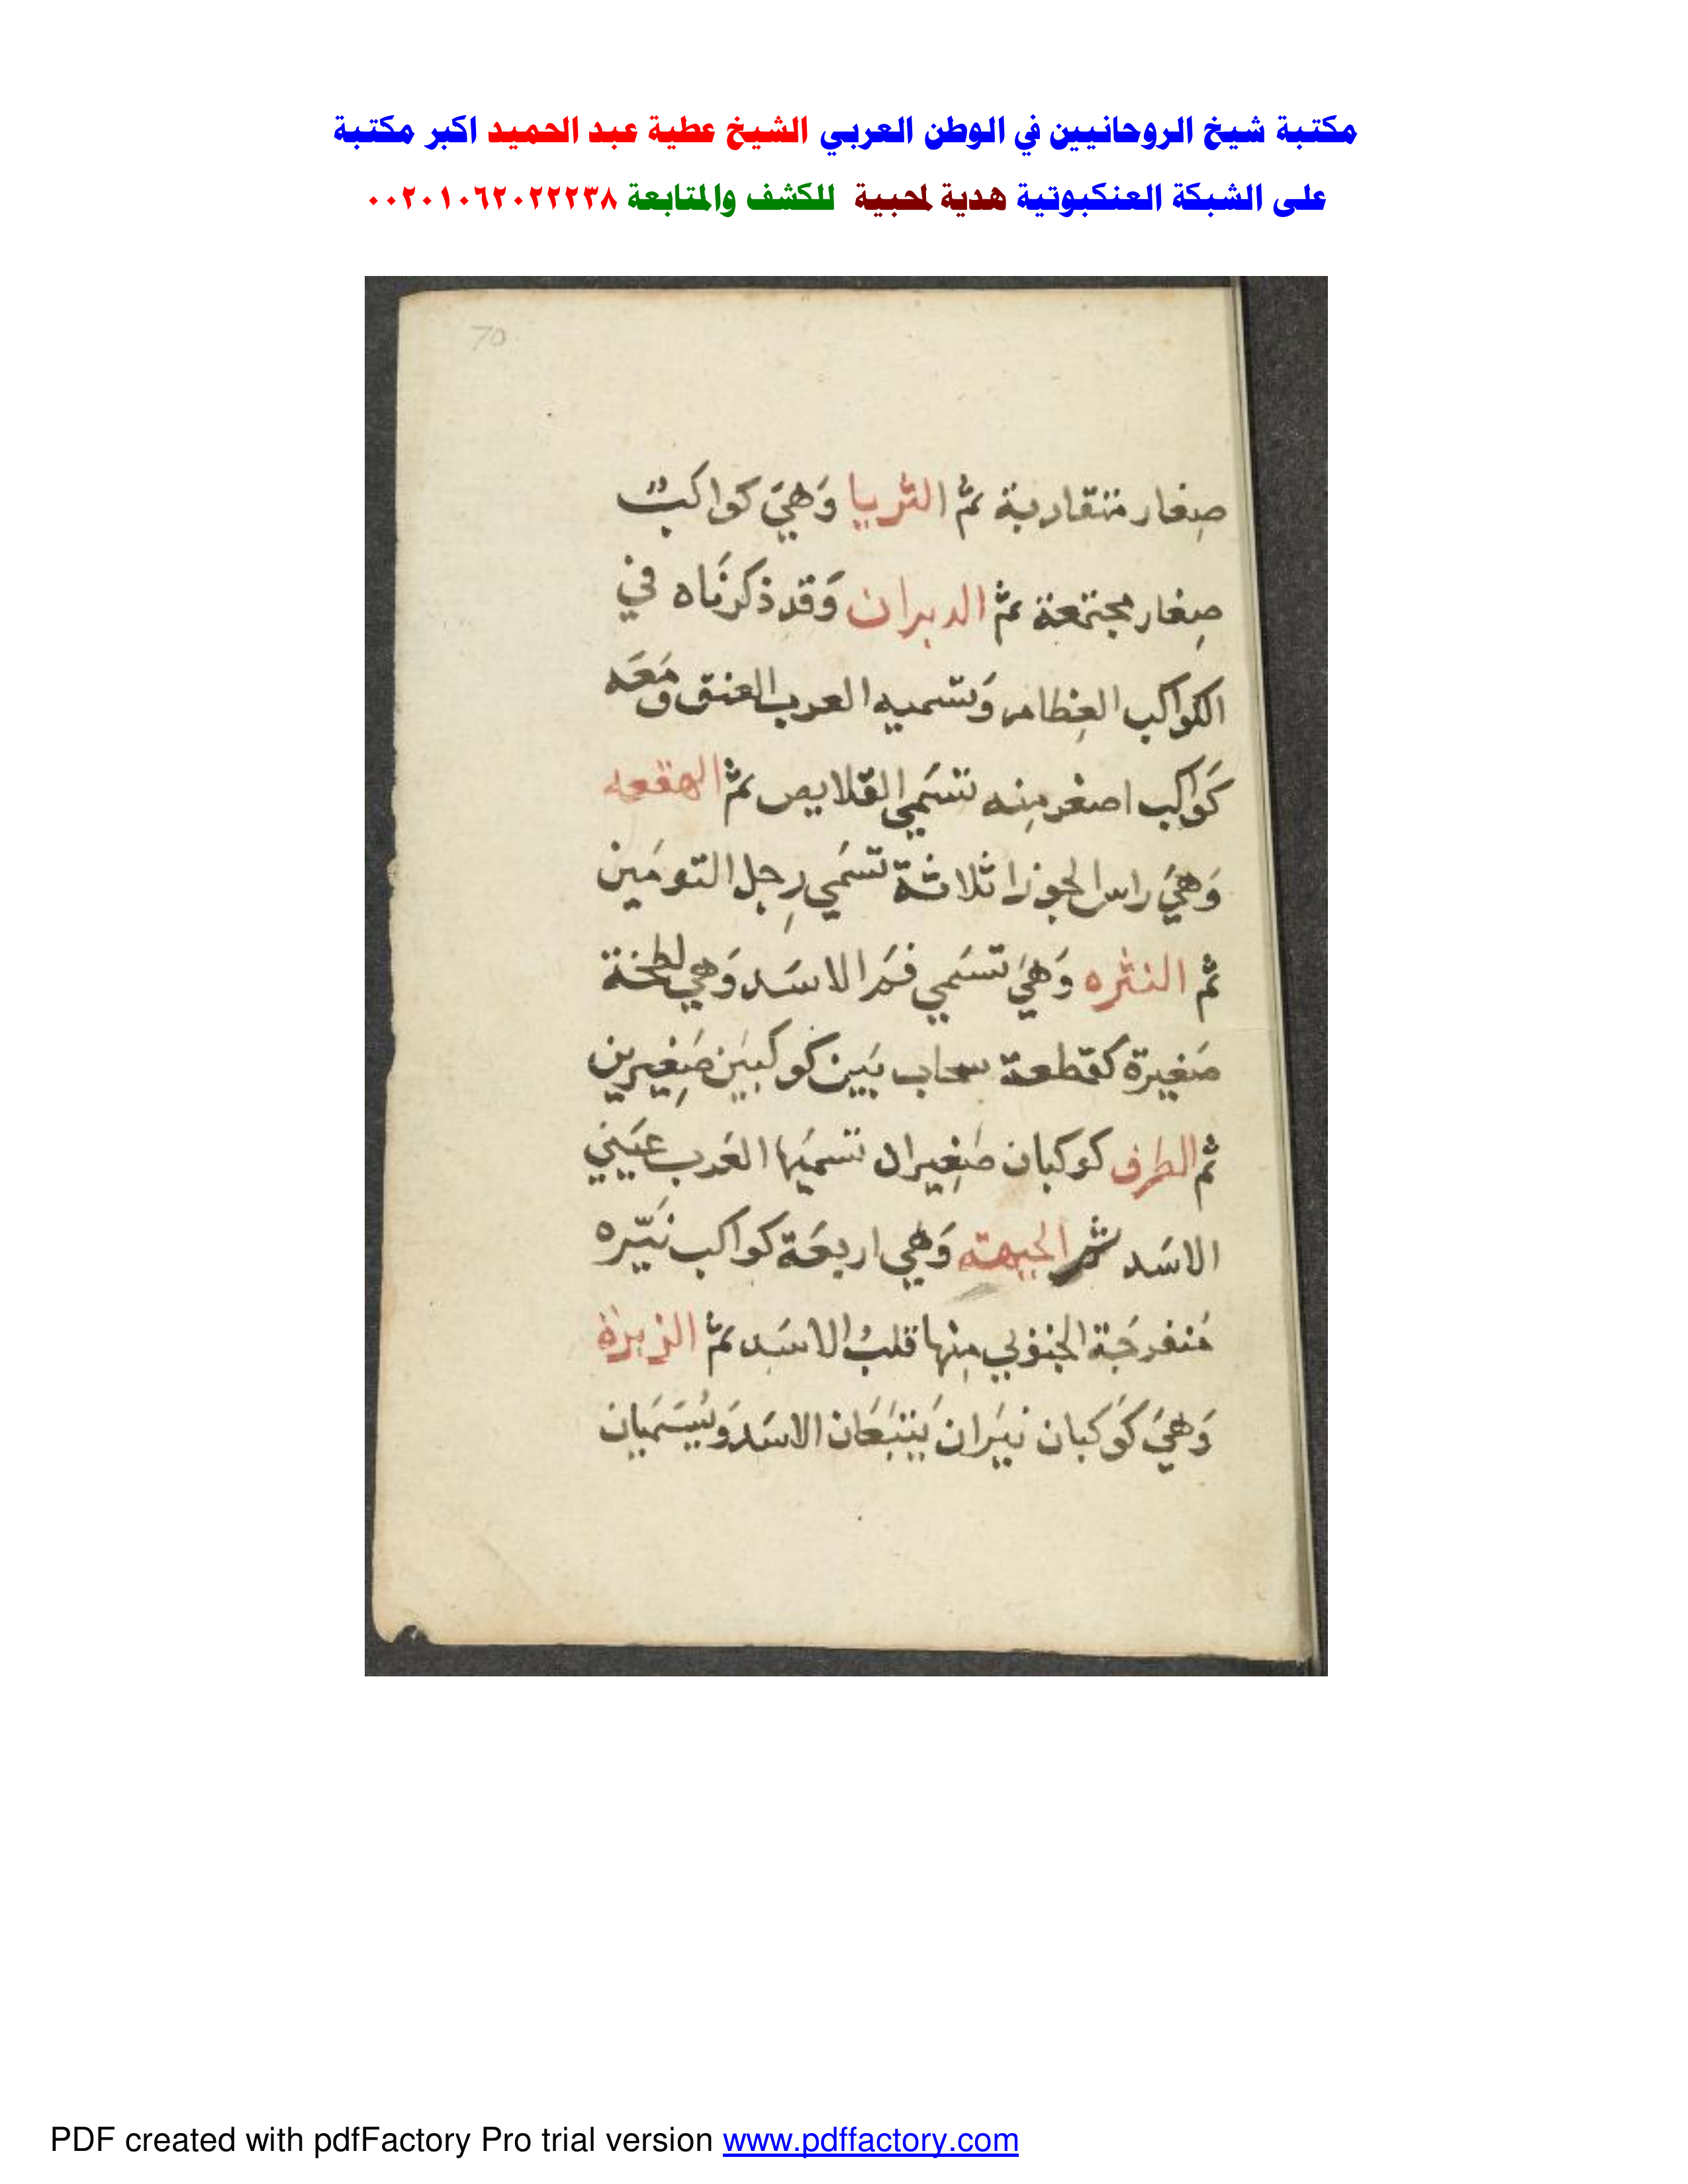 مكتبة شيخ الروحانيين في الوطن العربي الشيخ عطية عبد الحميد اكبر مكتبة
على الشبكة العنكبوتية هدية لمحبية للكشف والمتابعة ٠٠٢٠١٠٦٢٠٢٢٢٣٨
70
صِغار متقاربة ثم الثريا وَهيَ كواكبٌ
صِغار مجتمعة ثم الدبران وَقد ذكرنَاه في
الكواكب العِظام وَتسميه العرب العنق وَمَعَه
كَواكب اصغر مِنه تسَمي القلايص ثم الهقعه
وَهيَ راس الجوزا ثلاثة تسَمي رِجل التومَين
ثم النثره وَهيَ تسَمي فمَ الاسَد وَهي لطخة
صَغيرة كقطعة سحاب بَين كوكبَين صَغِيرين
ثم الطرف كوكبان صَغِيران تسميَها العَرب عَيني
الاسَد ثم الجبهته وَهي اربعَة كواكب نَيّره
مُنفرجَة الجنوبي مِنها قلبُ الاسَد ثم الزبرة
وَهيَ كَوكبان نيَران يَتبَعَان الاسَد وَيسَميَان
PDF created with pdfFactory Pro trial version www.pdffactory.com